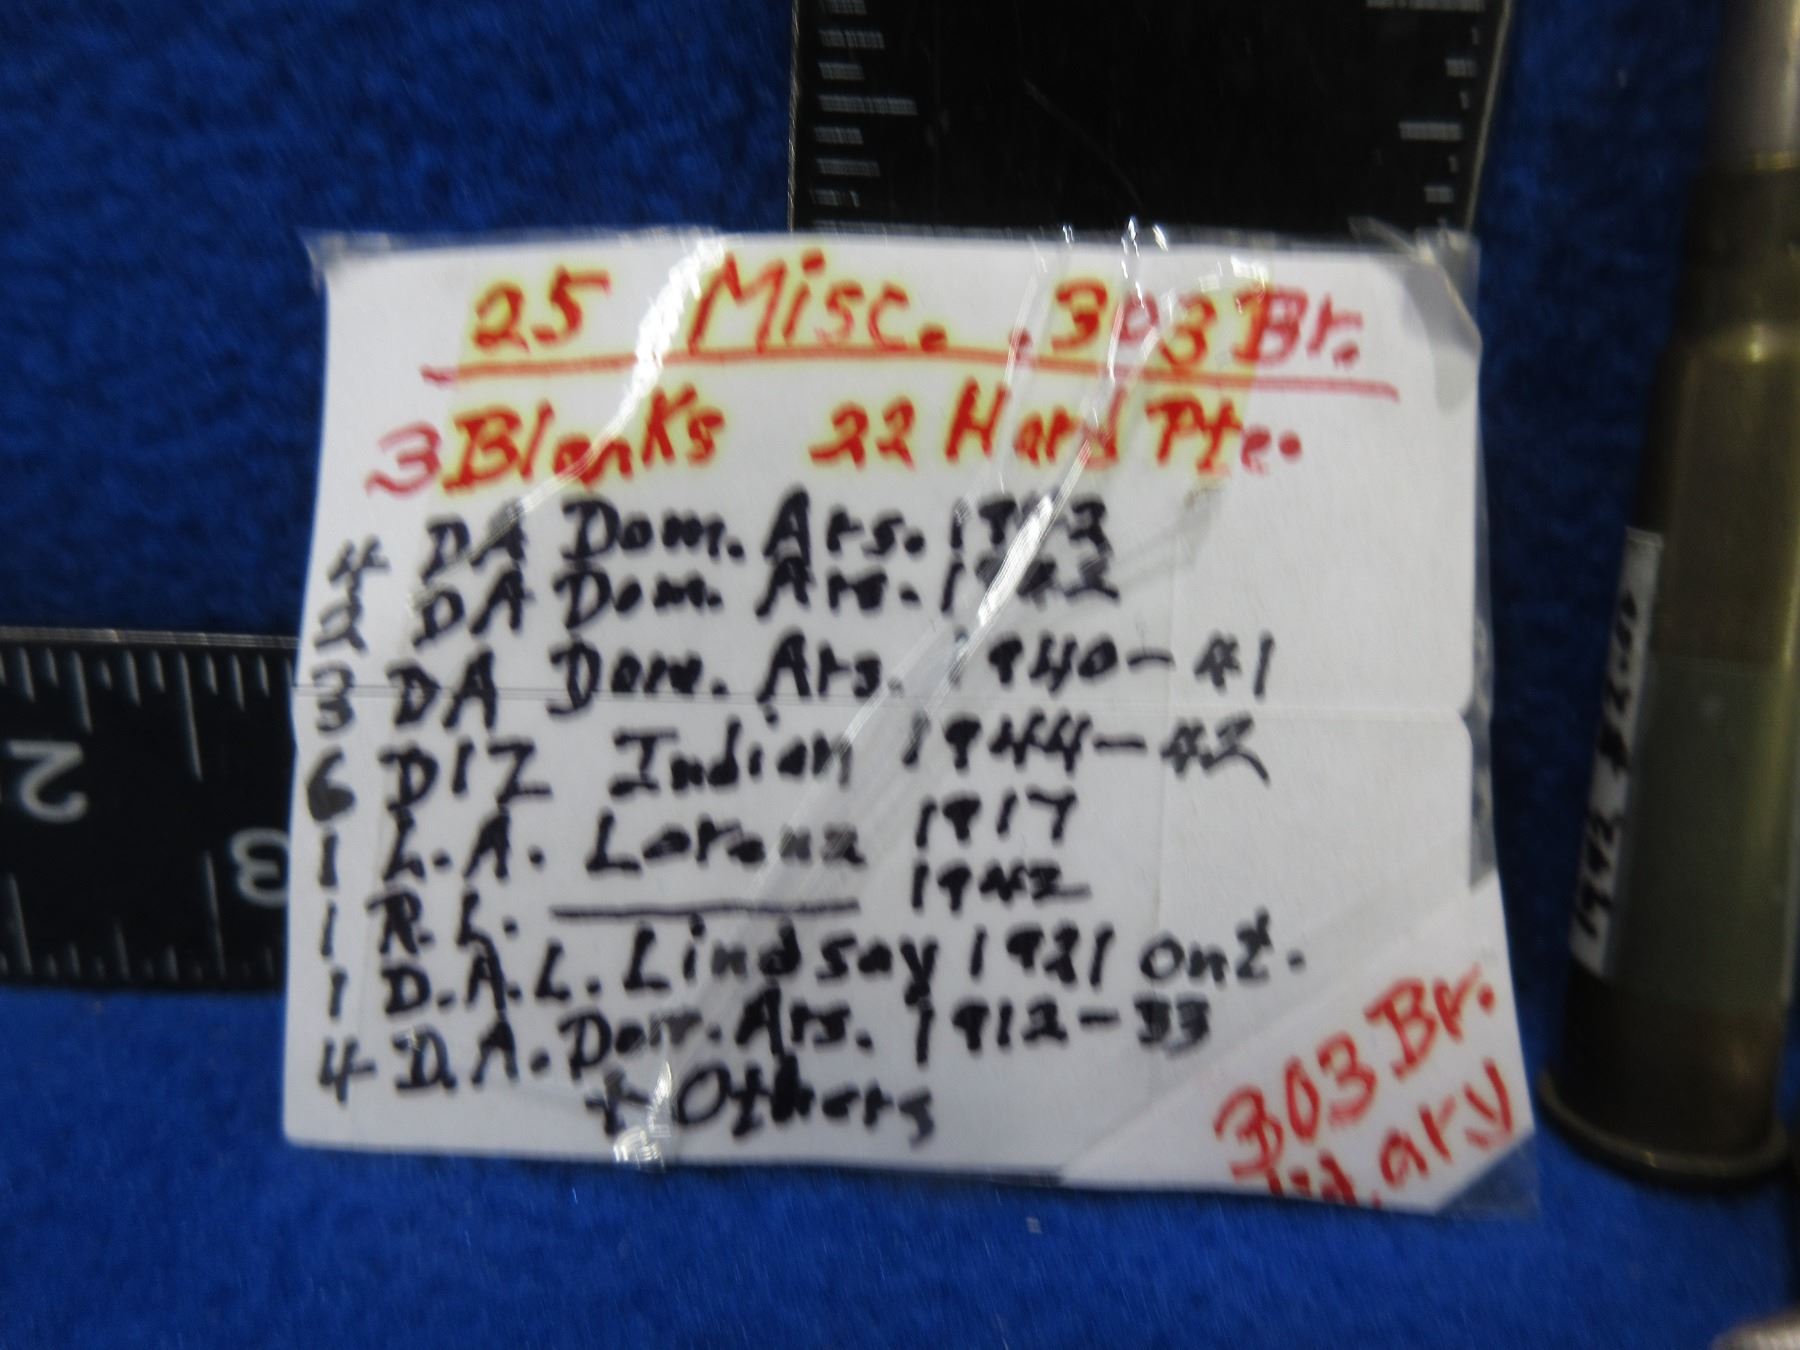 25 Misc. .303 Br.
3 Blanks 22 Hard Pte.
4 DA Dom. Ars. 1943
2 DA Dom. Ars. 1942
3 DA Dom. Ars. 1940-41
6 DIZ Indian 1944-42
1 L.A. Lorenz 1917
1 R.L. 1942
1 D.A.L. Lindsay 1921 Ont.
4 D.A. Dom. Ars. 1912-33
+ Others
303 Br.
2
3